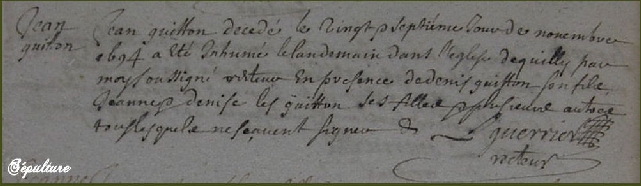 Jean
guitton
Jean guitton decedé le vingt septième Jour de novembre
1694 a été Inhumé le landemain dans l'eglise de quilly par
moy soussigné recteur En presence de denis guitton son fils
Jeanne denise les guitton ses filles plusieurs autres
tous lesquels ne sçavent signer
L guerrier
recteur
Sépulture